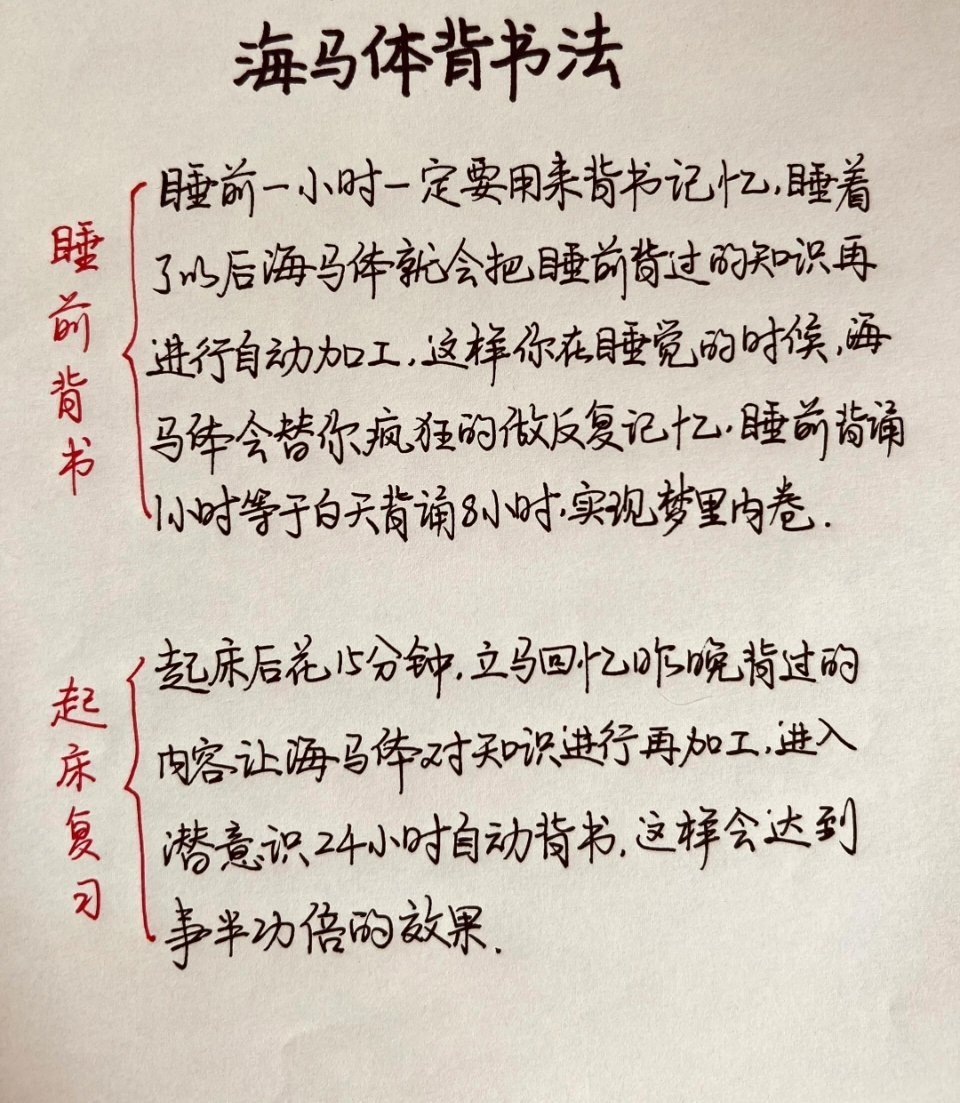 海马体背书法
睡前背书
睡前一小时一定要用来背书记忆,睡着
了以后海马体就会把睡前背过的知识再
进行自动加工,这样你在睡觉的时候,海
马体会替你疯狂的做反复记忆,睡前背诵
1小时等于白天背诵8小时,实现梦里内卷.
起床复习
起床后花15分钟,立马回忆昨晚背过的
内容让海马体对知识进行再加工,进入
潜意识24小时自动背书,这样会达到
事半功倍的效果.